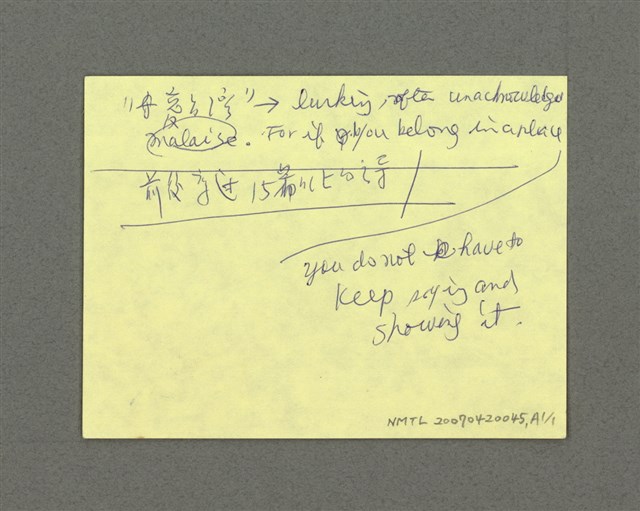 → lurking, often unacknowledge
malaise. For if you belong in a place
前後寫过15篇以上的詩
you do not have to
keep saying and
showing it.
NMTL 20070420045, A1/1